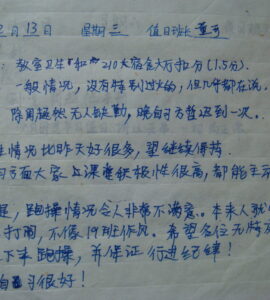 月13日 星期三 值日班长
教室卫生和210大宿舍大方扣分(1.5分).
一般情况, 没有特别过火的, 但几件都在说.
除周超然无人缺勤, 晚自习方哲迟到一次.
情况比昨天好很多, 望继续保持
方面大家上课积极性很高, 都能主
是, 跑操情况令人非常不满意. 本来人就
打闹, 不像19班作风. 希望各位无特
下来跑操, 并保证行进纪律!
自习很好!